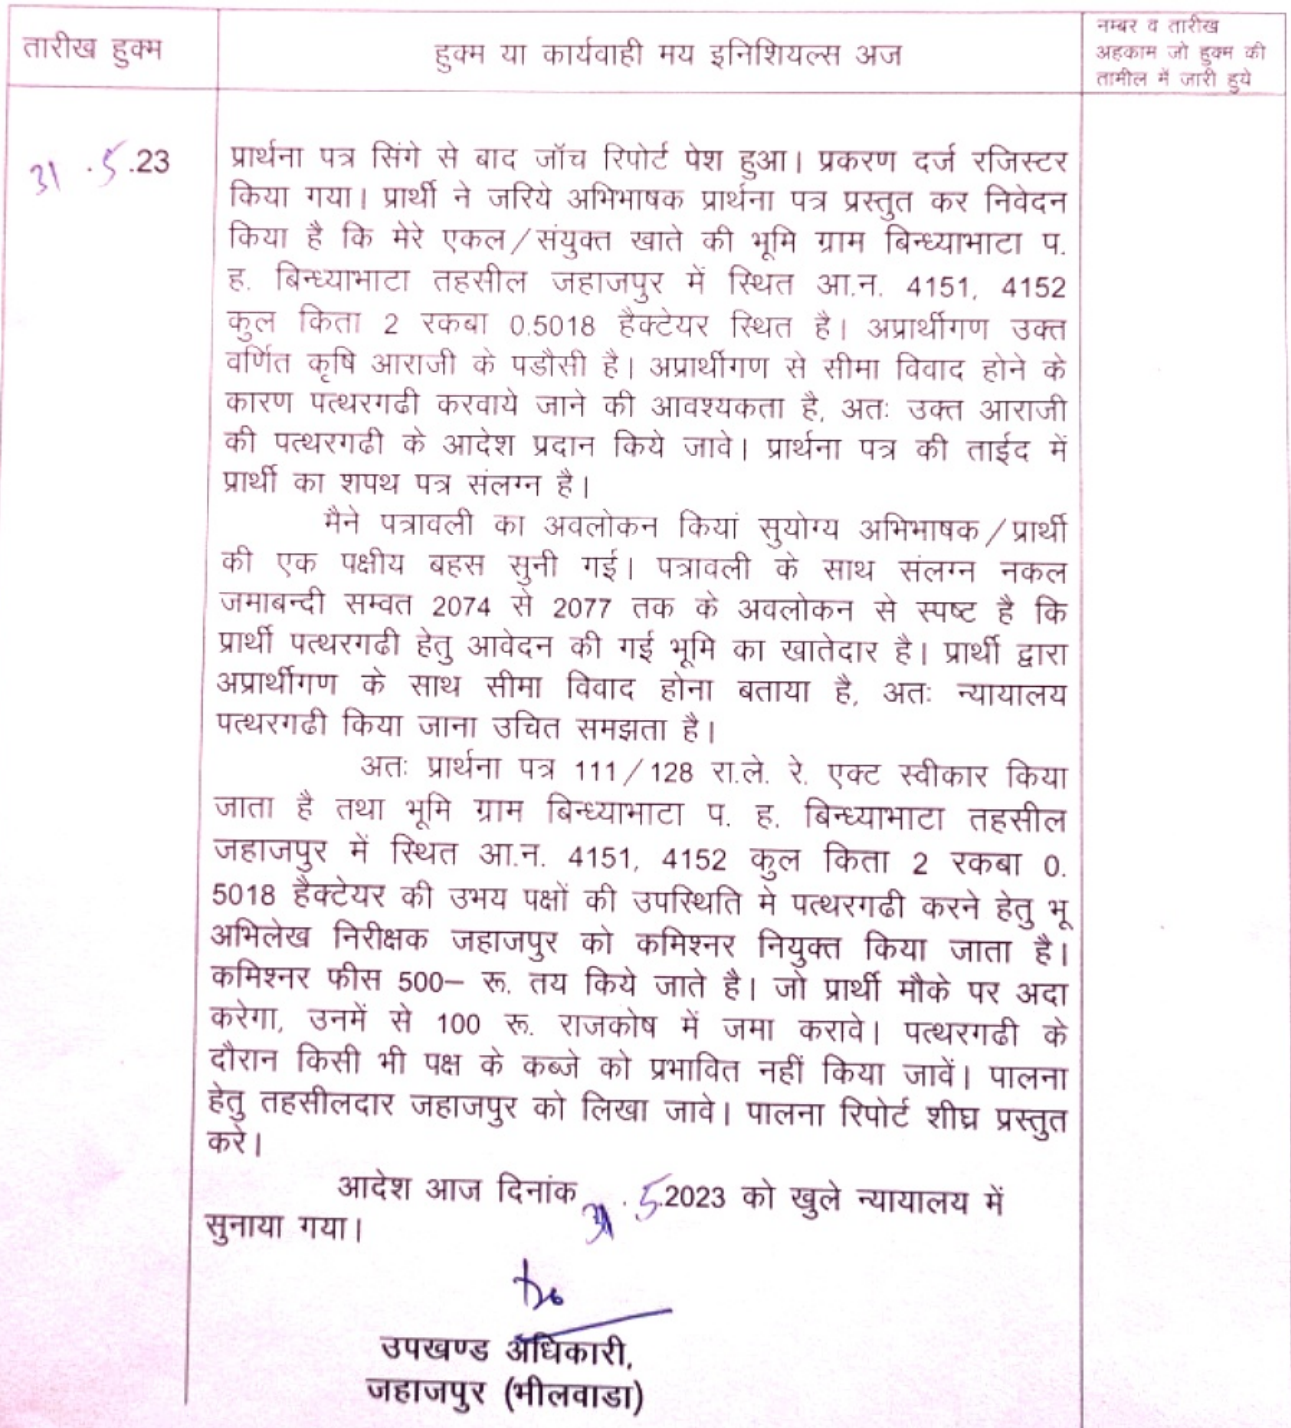 तारीख हुक्म
हुक्म या कार्यवाही मय इनिशियल्स अज
नम्बर व तारीख
अहकाम जो हुक्म की
तामील में जारी हुये
31.5.23
प्रार्थना पत्र सिंगे से बाद जॉच रिपोर्ट पेश हुआ। प्रकरण दर्ज रजिस्टर
किया गया। प्रार्थी ने जरिये अभिभाषक प्रार्थना पत्र प्रस्तुत कर निवेदन
किया है कि मेरे एकल/संयुक्त खाते की भूमि ग्राम बिन्ध्याभाटा प.
ह. बिन्ध्याभाटा तहसील जहाजपुर में स्थित आ.न. 4151, 4152
कुल किता 2 रकबा 0.5018 हैक्टेयर स्थित है। अप्रार्थीगण उक्त
वर्णित कृषि आराजी के पडौसी है। अप्रार्थीगण से सीमा विवाद होने के
कारण पत्थरगढी करवाये जाने की आवश्यकता है, अतः उक्त आराजी
की पत्थरगढी के आदेश प्रदान किये जावे। प्रार्थना पत्र की ताईद में
प्रार्थी का शपथ पत्र संलग्न है।
मैने पत्रावली का अवलोकन कियां सुयोग्य अभिभाषक/प्रार्थी
की एक पक्षीय बहस सुनी गई। पत्रावली के साथ संलग्न नकल
जमाबन्दी सम्वत 2074 से 2077 तक के अवलोकन से स्पष्ट है कि
प्रार्थी पत्थरगढी हेतु आवेदन की गई भूमि का खातेदार है। प्रार्थी द्वारा
अप्रार्थीगण के साथ सीमा विवाद होना बताया है, अतः न्यायालय
पत्थरगढी किया जाना उचित समझता है।
अतः प्रार्थना पत्र 111/128 रा.ले. रे. एक्ट स्वीकार किया
जाता है तथा भूमि ग्राम बिन्ध्याभाटा प. ह. बिन्ध्याभाटा तहसील
जहाजपुर में स्थित आ.न. 4151, 4152 कुल किता 2 रकबा 0.
5018 हैक्टेयर की उभय पक्षों की उपस्थिति मे पत्थरगढी करने हेतु भू
अभिलेख निरीक्षक जहाजपुर को कमिश्नर नियुक्त किया जाता है।
कमिश्नर फीस 500– रू. तय किये जाते है। जो प्रार्थी मौके पर अदा
करेगा, उनमें से 100 रू. राजकोष में जमा करावे। पत्थरगढी के
दौरान किसी भी पक्ष के कब्जे को प्रभावित नहीं किया जावें। पालना
हेतु तहसीलदार जहाजपुर को लिखा जावे। पालना रिपोर्ट शीघ्र प्रस्तुत
करे।
आदेश आज दिनांक 31.5.2023 को खुले न्यायालय में
सुनाया गया।
उपखण्ड अधिकारी,
जहाजपुर (भीलवाडा)